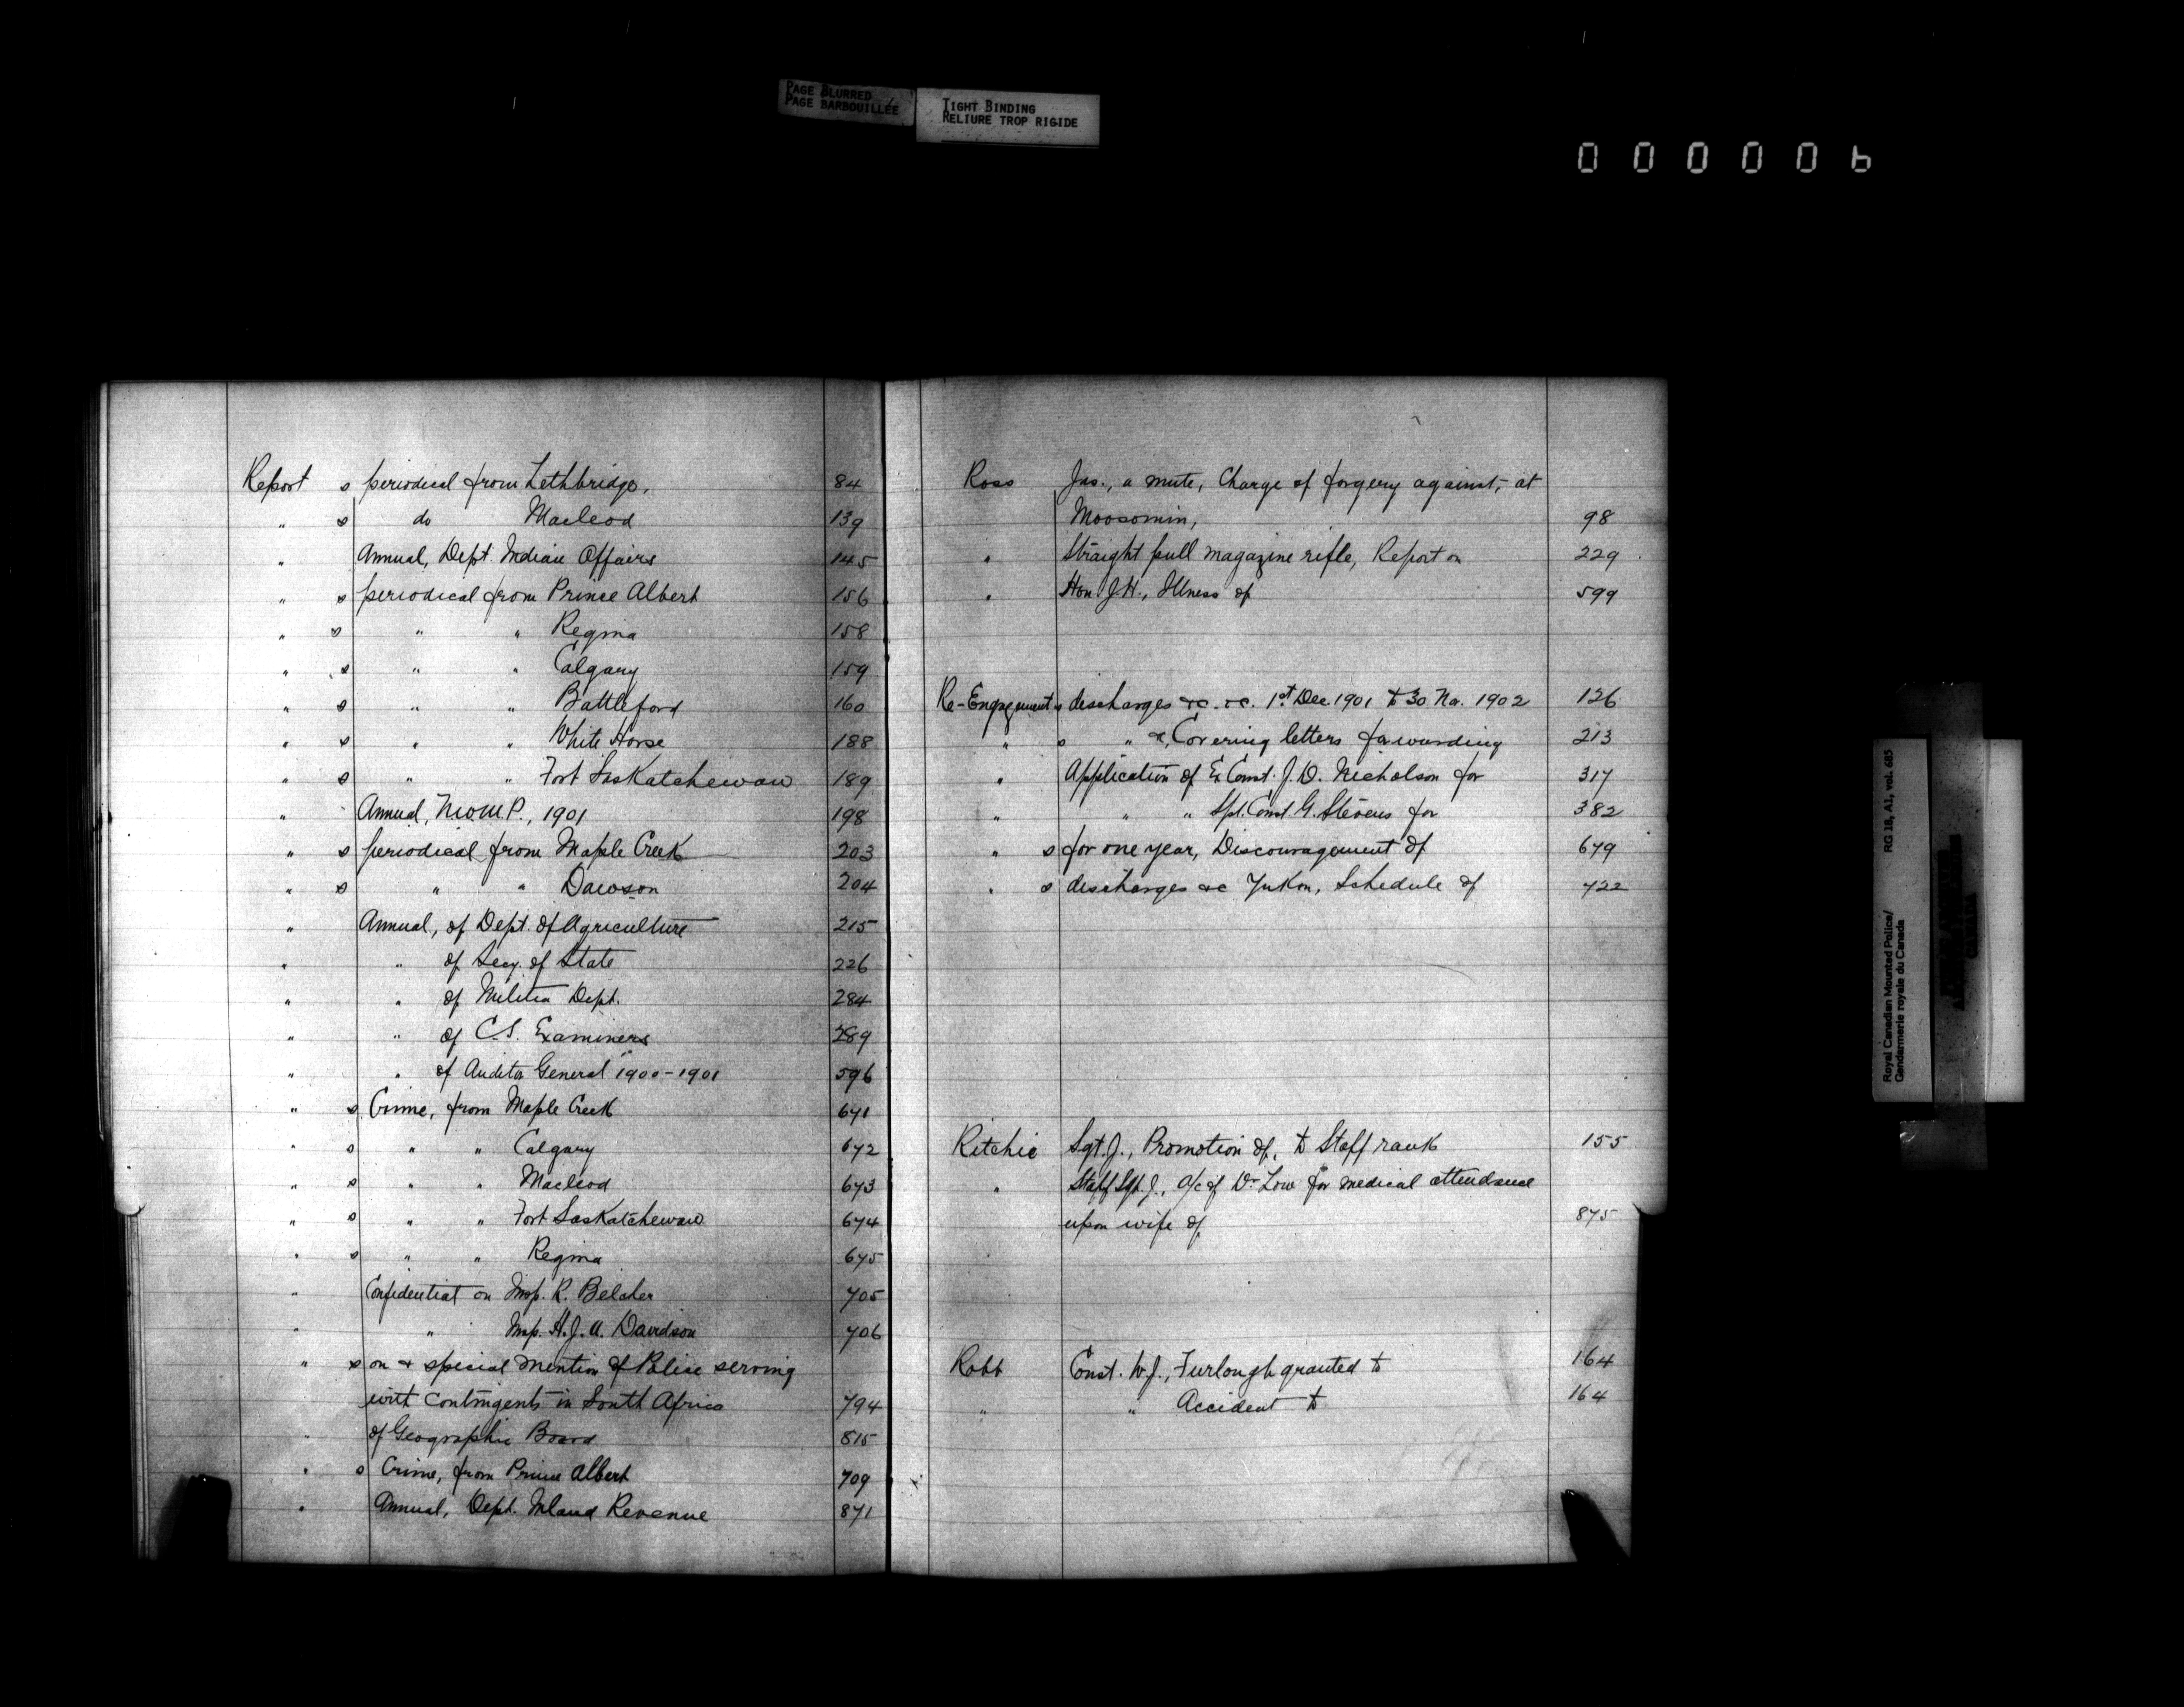 PAGE BLURRED
PAGE BARBOUILLÉE
TIGHT BINDING
RELIURE TROP RIGIDE
000006
Report s periodical from Lethbridge, 84
" s do Macleod 139
" Annual, Dept. Indian Affairs 145
" s periodical from Prince Albert 156
" s " " Regina 158
" s " " Calgary 159
" s " " Battleford 160
" s " " White Horse 188
" s " " Fort Saskatchewan 189
" Annual, N.W.M.P., 1901 198
" s periodical from Maple Creek 203
" s " " Dawson 204
" Annual, of Dept. of Agriculture 215
" " of Secy. of State 226
" " of Militia Dept. 284
" " of C.S. Examiners 289
" " of Auditor General 1900-1901 596
" s Crime, from Maple Creek 671
" s " " Calgary 672
" s " " Macleod 673
" s " " Fort Saskatchewan 674
" s " " Regina 675
" Confidential on Insp. R. Belcher 705
" " Insp. H.J.A. Davidson 706
" s on & special mention of Police serving
with Contingents in South Africa 794
" of Geographic Board 815
" s Crime, from Prince Albert 709
" Annual, Dept. Inland Revenue 871
Ross Jas., a mute, Charge of forgery against, at
Moosomin, 98
" Straight pull magazine rifle, Report on 229
" Hon J.H., Illness of 599
Re-Engagement s discharges &c. &c. 1st Dec. 1901 to 30 Nov. 1902 126
" s " &c, Covering letters forwarding 213
" Application of Ex Const. J.D. Nicholson for 317
" " " Spl. Const. G. Stevens for 382
" s for one year, Discouragement of 679
" s discharges &c Yukon, Schedule of 722
Ritchie Sgt. J., Promotion of, to Staff rank 155
" Staff Sgt. J., a/c of Dr Low for medical attendance
upon wife of 875
Robb Const. W.J., Furlough granted to 164
" " Accident to 164
Royal Canadian Mounted Police/ RG 18, A1, vol. 685
Gendarmerie royale du Canada